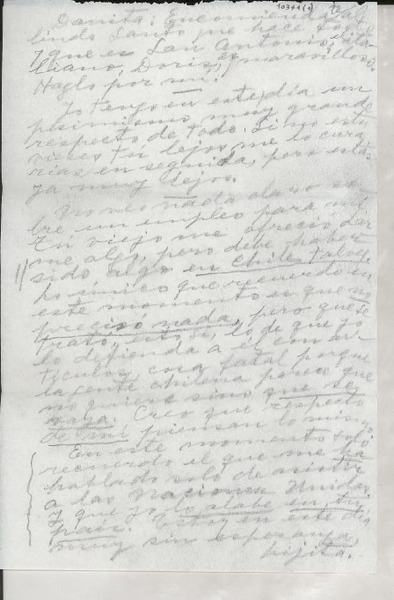 10371(1) 72
Danita: Encomiéndate al
lindo Santo que hace todo
y que es San Antonio, el ita-
liano, Doris, es maravilloso.
Haglo por mí.
Yo tengo en este día un
pesimismo muy grande
respecto de todo. Si no estu-
vieses tú lejos me lo cura-
rías en seguida, pero estás
ya muy lejos.
No veo nada claro so-
bre un empleo para mí.
Tu viejo me ofreció dar
me algo, pero debe haber
sido algo en Chile. Talvez
lo único que recuerdo en
este momento en que no
precisó nada, pero que se
trató, esto sí, lo de que yo
lo defienda a él con ar-
tículos, cosa fatal porque
la gente chilena parece que
no quiere sino que se
vaya. Creo que respecto
de mí piensan lo mismo.
En este momento solo
recuerdo el que me ha
hablado solo de asistir
a las Naciones Unidas
y que yo lo alabe en tu
país. Estoy en este día
muy sin esperanza,
hijita.